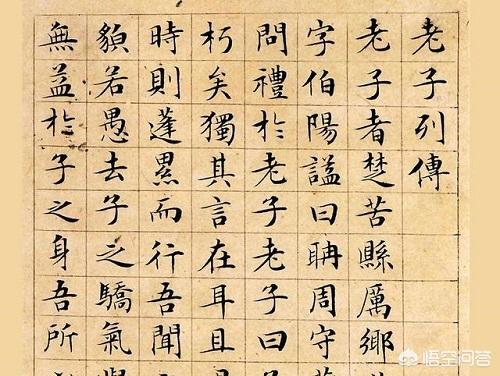 老子列傳
老子者楚苦縣厲鄉
字伯陽謚曰聃周守
問禮於老子老子曰
朽矣獨其言在耳且
時則蓬累而行吾聞
貌若愚去子之驕氣
無益於子之身吾所
悟空问答